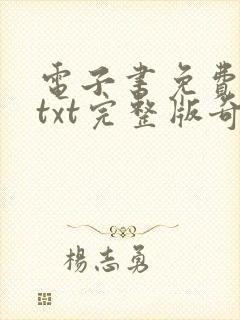 電子書免費
txt完整版奇
楊志勇